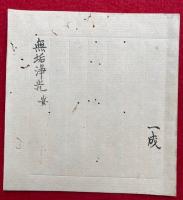 一成
無垢浄光